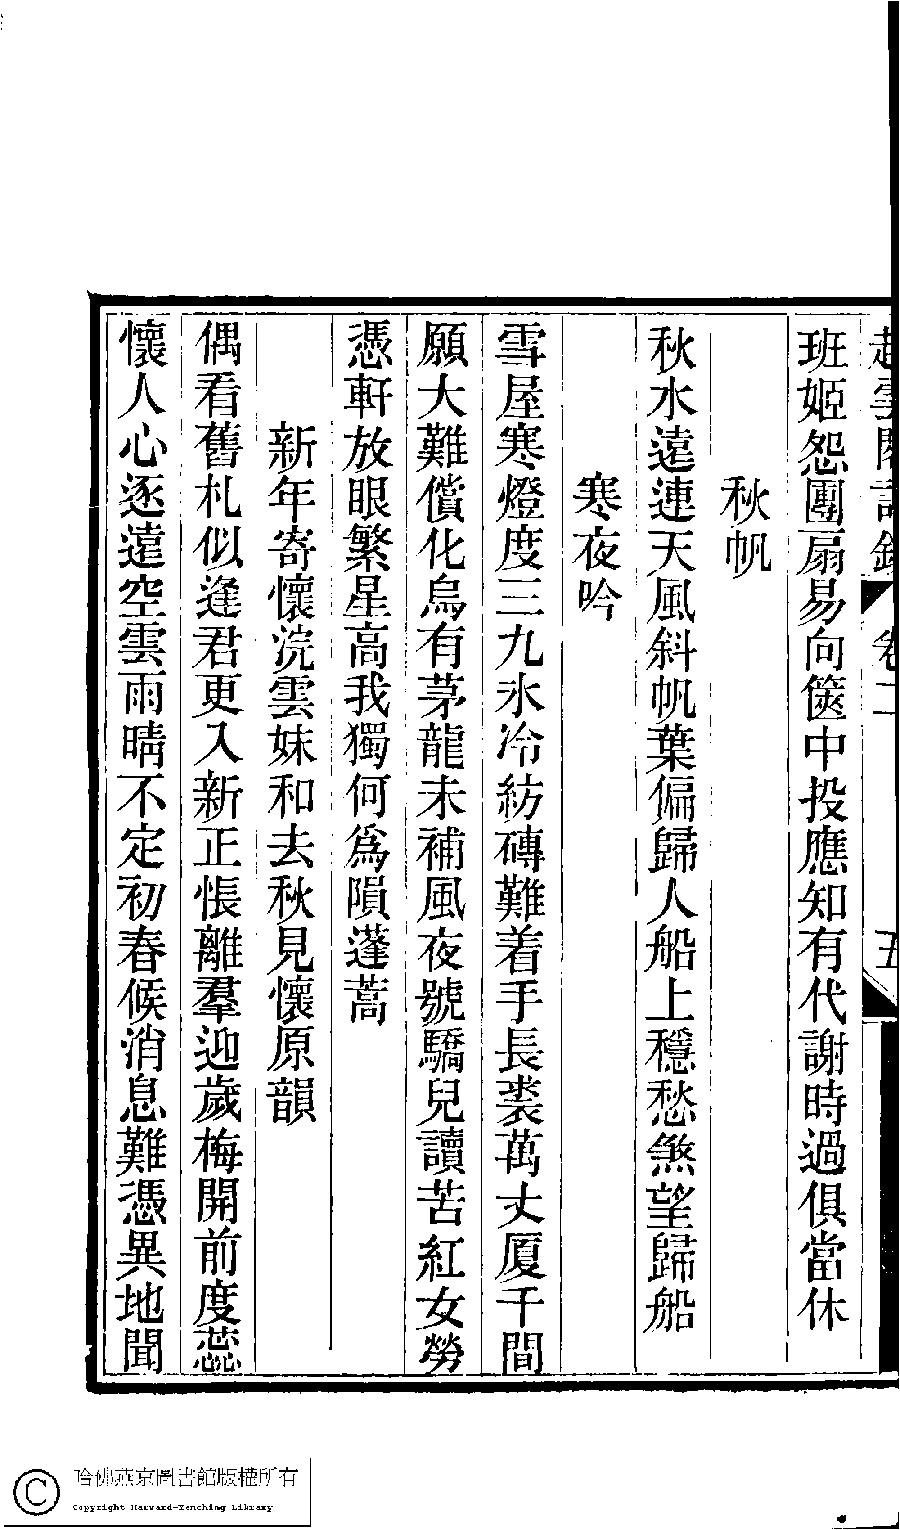 起雲閣詩鈔 卷二 五
班姬怨團扇易向篋中投應知有代謝時過俱當休
秋帆
秋水遠連天風斜帆葉偏歸人船上穩愁煞望歸船
寒夜吟
雪屋寒燈度三九氷冷紡磚難着手長裘萬丈厦千間
願大難償化烏有茅龍未補風夜號驕兒讀苦紅女勞
憑軒放眼繁星高我獨何為隕蓬蒿
新年寄懷浣雲妹和去秋見懷原韻
偶看舊札似逢君更入新正悵離羣迎歲梅開前度蕊
懷人心逐遠空雲雨晴不定初春候消息難憑異地聞
哈佛燕京圖書館版權所有
Copyright Harvard-Yenching Library